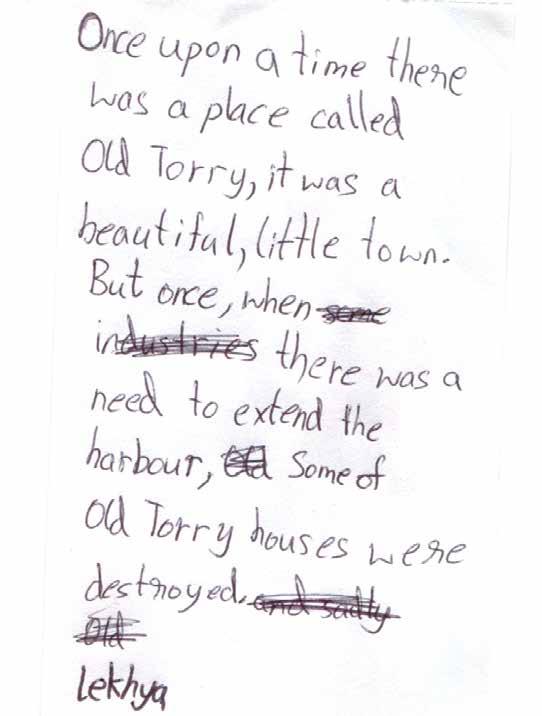 Once upon a time there
was a place called
Old Torry, it was a
beautiful, little town.
But once, when some
industries there was a
need to extend the
harbour, Old Some of
Old Torry houses were
destroyed. and sadly
Old
Lekhya